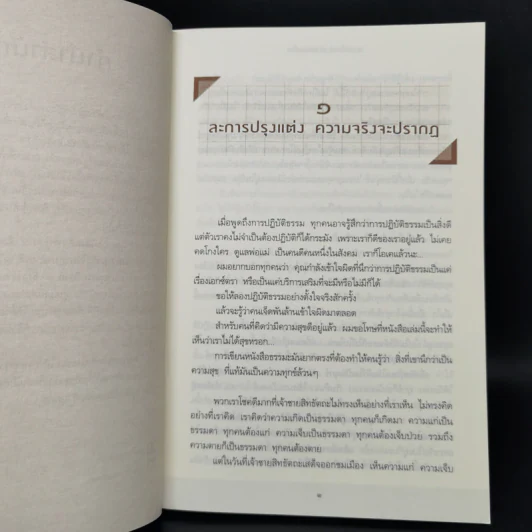 ๑
ละการปรุงแต่ง ความจริงจะปรากฏ
เมื่อพูดถึงการปฏิบัติธรรม ทุกคนอาจรู้สึกว่าการปฏิบัติธรรมเป็นสิ่งดี
แต่ตัวเราคงไม่จำเป็นต้องปฏิบัติก็ได้กระมัง เพราะเราก็ดีของเราอยู่แล้ว ไม่เคย
คดโกงใคร ดูแลพ่อแม่ เป็นคนดีคนหนึ่งในสังคม เราก็โอเคแล้วนะ...
ผมอยากบอกทุกคนว่า คุณกำลังเข้าใจผิดที่นึกว่าการปฏิบัติธรรมเป็นแค่
เรื่องเอกซ์ตรา หรือเป็นแค่บริการเสริมที่จะมีหรือไม่มีก็ได้
ขอให้ลองปฏิบัติธรรมอย่างตั้งใจจริงสักครั้ง
แล้วจะรู้ว่าคนเจ็ดพันล้านเข้าใจผิดมาตลอด
สำหรับคนที่คิดว่ามีความสุขดีอยู่แล้ว ผมขอโทษที่หนังสือเล่มนี้จะทำให้
เห็นว่าเราไม่ได้สุขหรอก...
การเขียนหนังสือธรรมะมันยากตรงที่ต้องทำให้คนรู้ว่า สิ่งที่เขานึกว่าเป็น
ความสุข ที่แท้มันเป็นความทุกข์ล้วนๆ
พวกเราโชคดีมากที่เจ้าชายสิทธัตถะไม่ทรงเห็นอย่างที่เราเห็น ไม่ทรงคิด
อย่างที่เราคิด เราคิดว่าความเกิดเป็นธรรมดา ทุกคนก็เกิดมา ความแก่เป็น
ธรรมดา ทุกคนต้องแก่ ความเจ็บเป็นธรรมดา ทุกคนต้องเจ็บป่วย รวมถึง
ความตายก็เป็นธรรมดา ทุกคนต้องตาย
แต่ในวันที่เจ้าชายสิทธัตถะเสด็จออกชมเมือง เห็นความแก่ ความเจ็บ